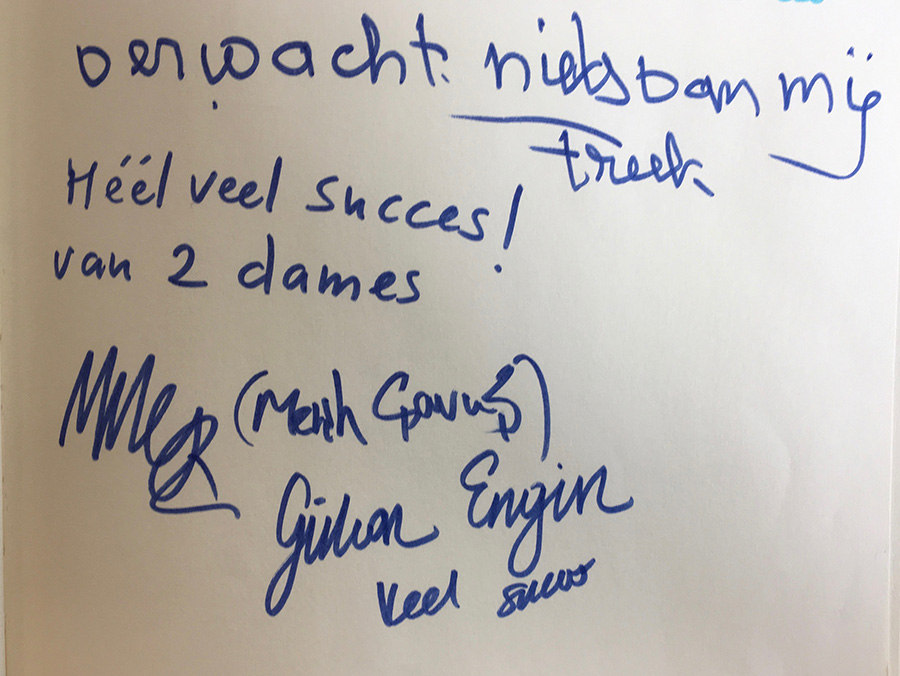 verwacht niets van mij
treek
Héél veel succes!
van 2 dames
(Melih Çavuş)
Gürkan Engin
Veel succes